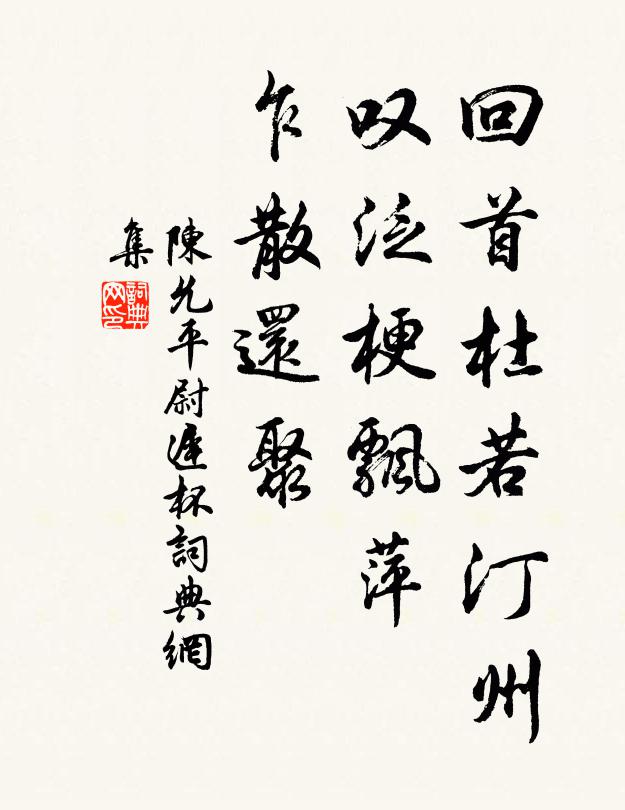 回首杜若汀州
叹泛梗飄萍
乍散還聚
陳允平尉遲杯詞典網
集
詞典网印